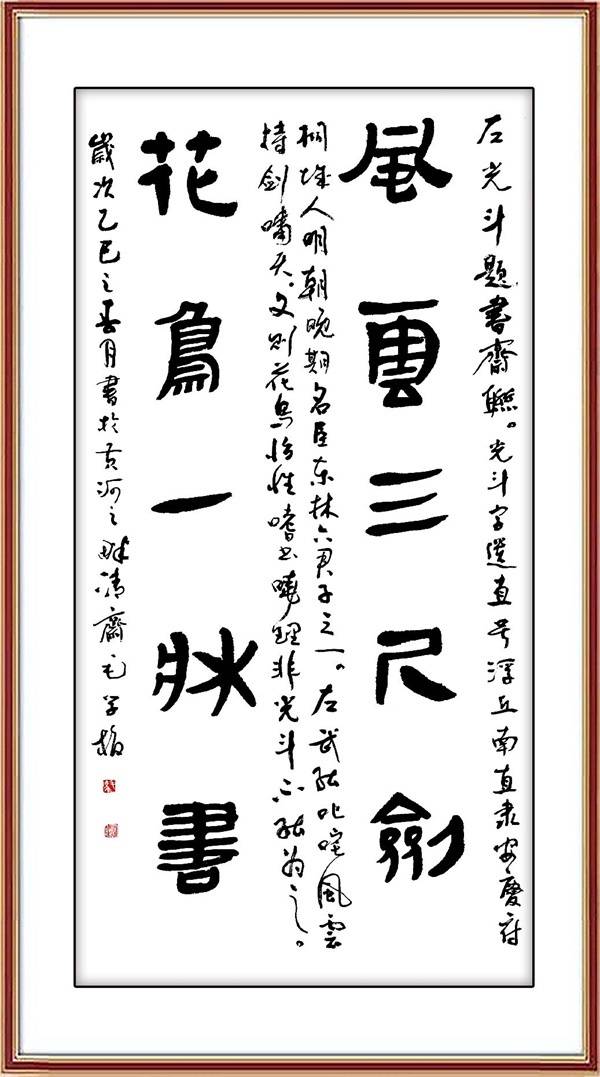 左光斗題書齋聯。光斗字遺直号浮丘南直隶安慶府
風雲三尺劍
桐城人明朝晚期名臣东林六君子之一。左武能叱咤風雲
持劍嘯天。文则花鳥怡性嗜书曉理非光斗不能为之。
花鳥一牀書
歲次乙巳之春月書於黄河之畔清齋毛学